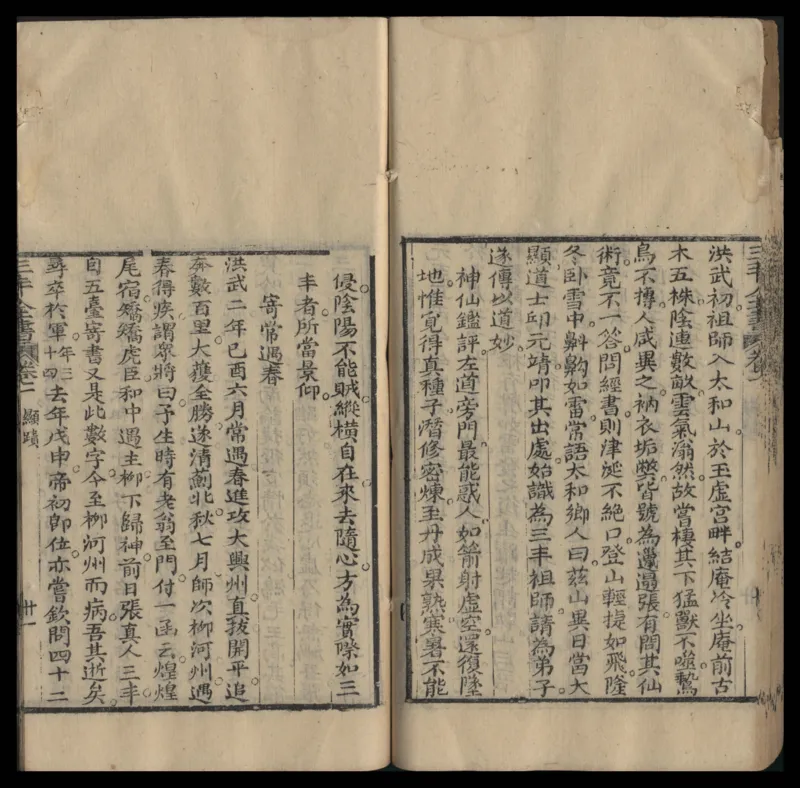 三丰全書
洪武初祖師入太和山於玉虛宮畔結庵冷坐庵前古
木五株陰連數畝雲氣滃然故當棲其下猛獸不噬鷙
鳥不搏人咸異之衲衣垢弊皆號為邋遢張有問其仙
術竟不一答問經書則津涎不絕口登山輕捷如飛隆
冬臥雪中鼾齁如雷常語太和鄉人曰茲山異日當大
顯道士邱元靖叩其出處始識為三丰祖師請為弟子
遂傳以道妙
神仙鑑評左道旁門最能惑人如箭射虛空還復墜
地惟覓得真種子潛修密煉玉丹成果熟寒暑不能
侵陰陽不能賊縱橫自在來去隨心方為實際如三
丰者所當景仰
寄常遇春
洪武二年己酉六月常遇春進攻大興州直拔開平追
奔數百里大獲全勝遂清薊北秋七月師次柳河州遇
春得疾謂眾將曰予生時有老翁至門付一函云煌煌
尾宿矯矯虎臣和中遇主柳下歸神前日張真人三丰
自五臺寄書又是此數字今至柳河州而病吾其逝矣
尋卒於軍年三十四去年戊申帝初即位亦嘗欽問四十二
三丰全書 卷二 顯蹟 廿一